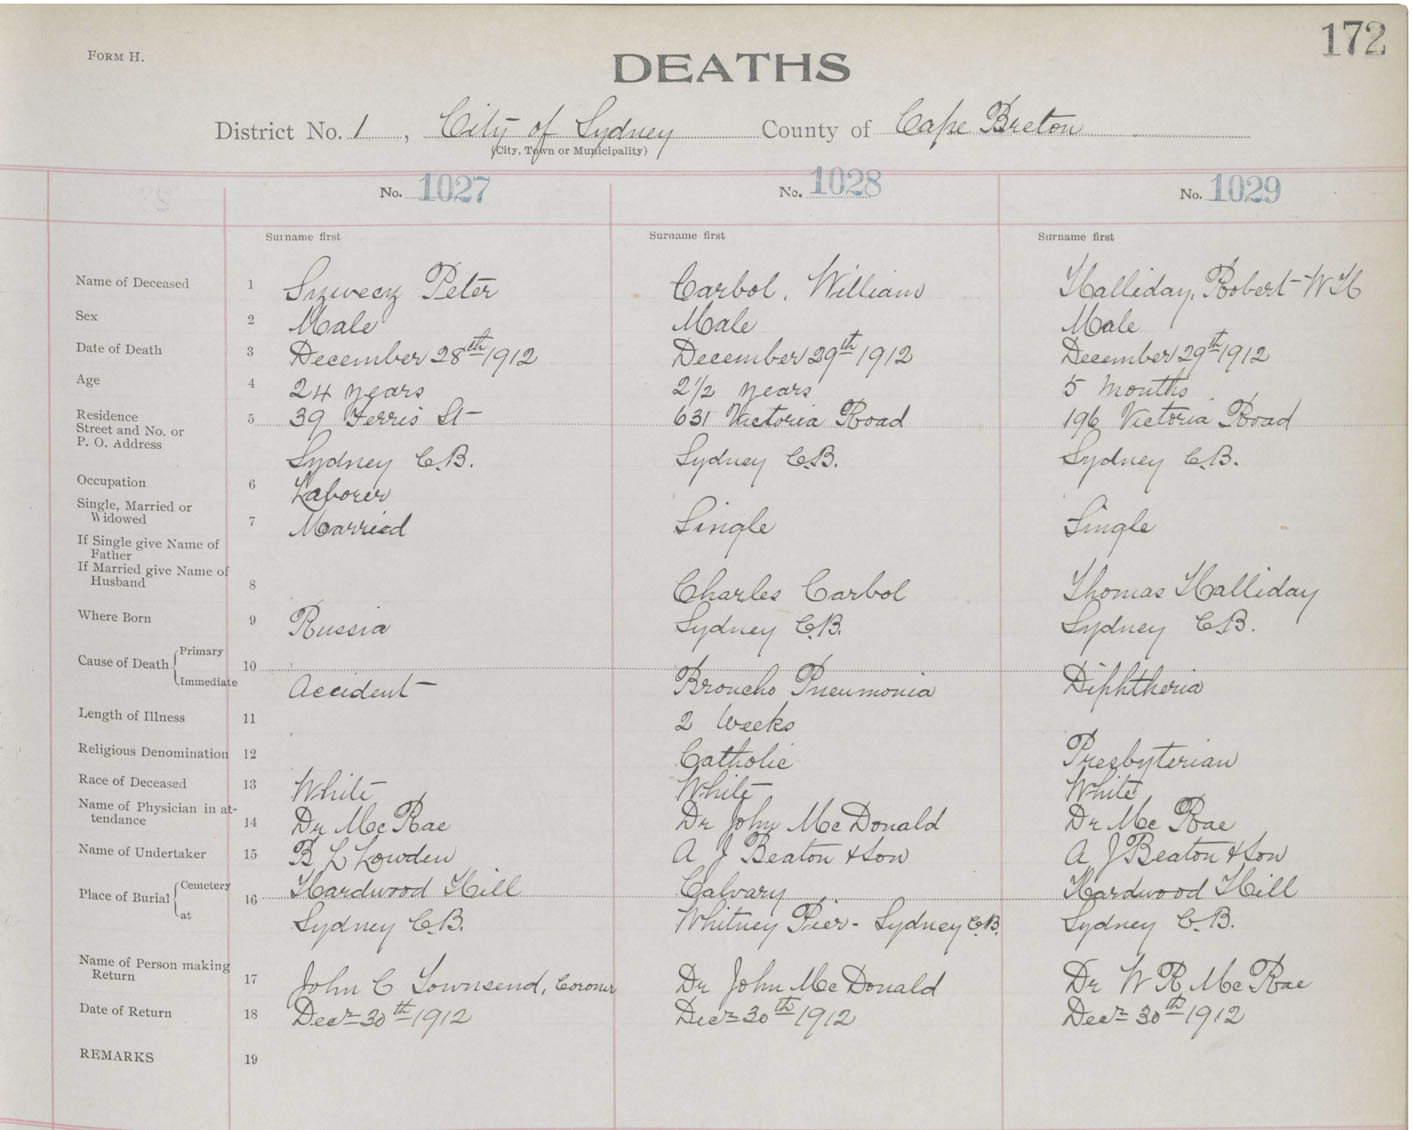 172
FORM H.
DEATHS
District No. 1, City of Sydney County of Cape Breton
(City, Town or Municipality)
No. 1027 No. 1028 No. 1029
Surname first Surname first Surname first
Name of Deceased 1 Peter Carbol, William Halliday, Robert W H
Sex 2 Male Male Male
Date of Death 3 December 28th 1912 December 29th 1912 December 29th 1912
Age 4 24 years 2 1/2 years 5 months
Residence
Street and No. or 5 39 Ferris St 631 Victoria Road 196 Victoria Road
P. O. Address
Sydney C.B. Sydney C.B. Sydney C.B.
Occupation 6 Laborer
Single, Married or
Widowed 7 Married Single Single
If Single give Name of
Father
If Married give Name of
Husband 8 Charles Carbol Thomas Halliday
Where Born 9 Russia Sydney C.B. Sydney C.B.
Cause of Death Primary 10
Immediate Accident Broncho Pneumonia Diphtheria
Length of Illness 11 2 Weeks
Religious Denomination 12 Catholic Presbyterian
Race of Deceased 13 White White White
Name of Physician in at-
tendance 14 Dr Mc Rae Dr John Mc Donald Dr Mc Rae
Name of Undertaker 15 B L Lowden A J Beaton & Son A J Beaton & Son
Place of Burial Cemetery 16 Hardwood Hill Calvary Hardwood Hill
at Sydney C.B. Whitney Pier - Sydney C.B. Sydney C.B.
Name of Person making
Return 17 John C Townsend, Coroner Dr John Mc Donald Dr W R Mc Rae
Date of Return 18 Decr 30th 1912 Decr 30th 1912 Decr 30th 1912
REMARKS 19